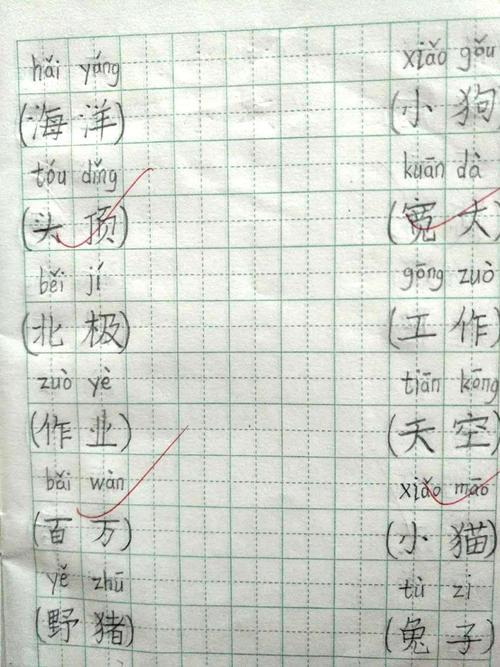 hǎi yáng
(海洋)
tóu dǐng
(头顶)
běi jí
(北极)
zuò yè
(作业)
bǎi wàn
(百万)
yě zhū
(野猪)
xiǎo gǒu
(小狗
kuān dà
(宽大
gōng zuò
(工作)
tiān kōng
(天空)
xiǎo māo
(小猫)
tù zi
(兔子)